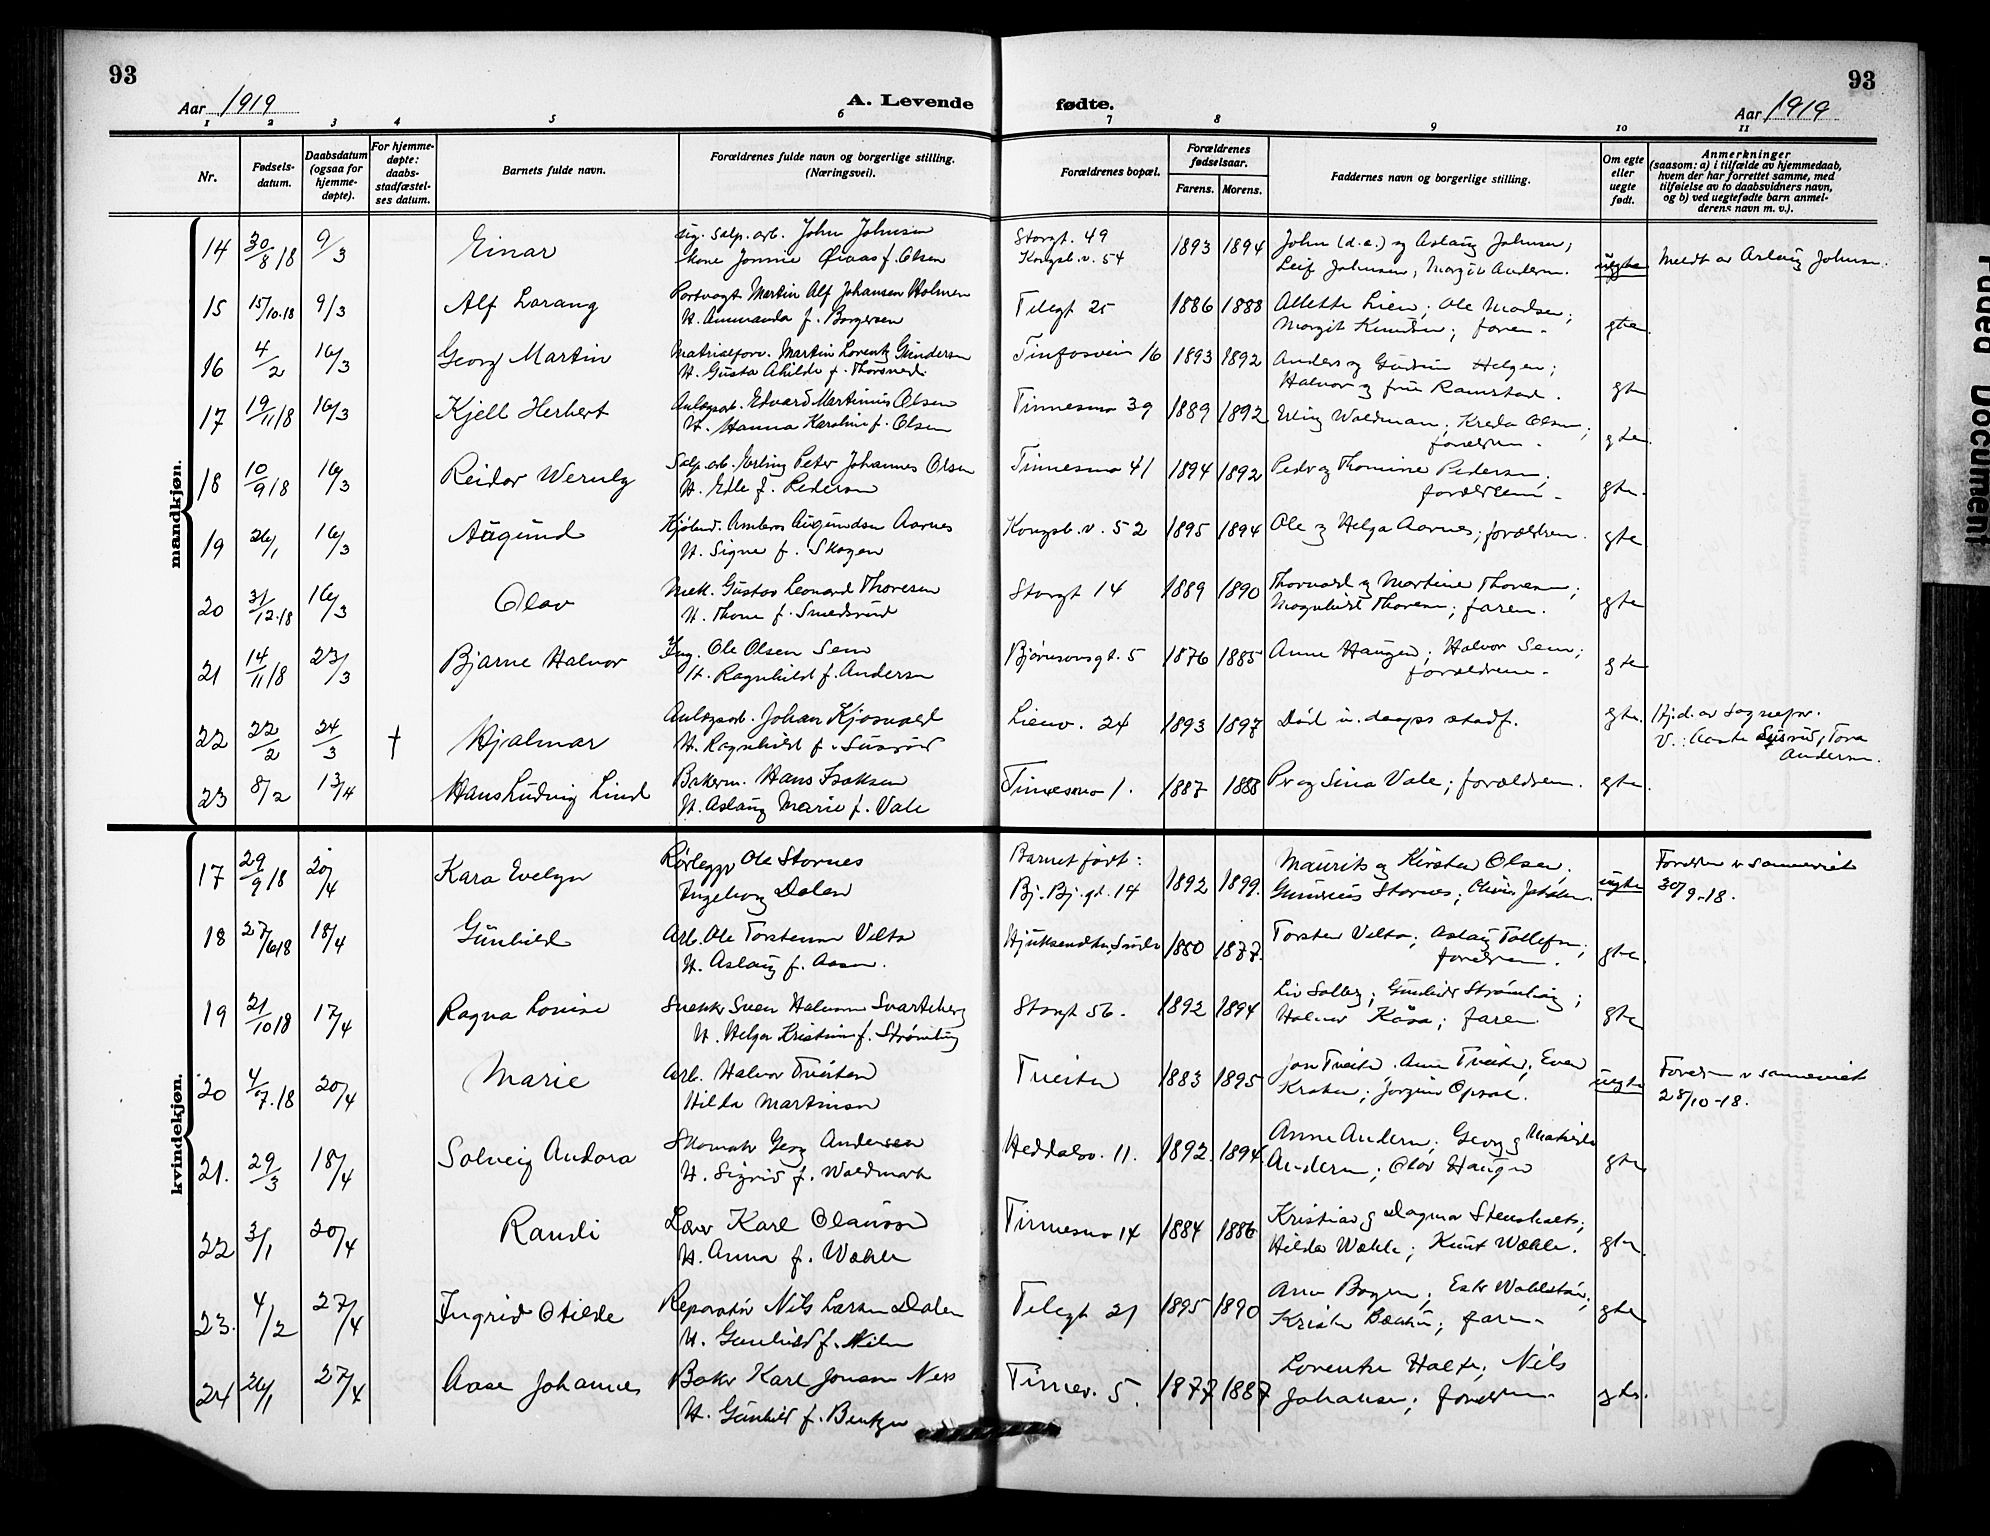 93
93
Aar 1919
A. Levende
fødte.
Aar 1919
1 2 3 4 5 6 7 8 9 10 11
Nr.
Fødsels-
datum.
Daabsdatum
(ogsaa for
hjemme-
døpte).
For hjemme-
døpte:
daabs-
stadfæstel-
ses datum.
Barnets fulde navn.
Forældrenes fulde navn og borgerlige stilling.
(Næringsvei).
Forældrenes bopæl.
Forældrenes
fødselsaar.
Farens. Morens.
Faddernes navn og borgerlige stilling.
Om egte
eller
uegte
født.
Anmerkninger
(saasom: a) i tilfælde av hjemmedaab,
hvem der har forrettet samme, med
tilføielse av to daabsvidners navn,
og b) ved uegtefødte barn anmel-
derens navn m. v.).
mandkjøn.
14 30/8 18 9/3 Einar ug. Salp. arb. John Johnsen Storgt. 49 1893 1894 John (d.e.) og Aslaug Johnsen; uegte Meldt av Aslaug Johnsen.
Kone Jonnie Øivas f. Olsen Kongsb. v. 54 Leif Johnsen; Margit Andersen.
15 15/10.18 9/3 Alf Lorang Portvagt Martin Alf Johansen Holmen Telegt 25 1886 1888 Allette Lien; Ole Madsen; gte
H. Ammanda f. Borgersen Margit Knudsen; faren.
16 4/2 16/3 Georg Martin Matrialforv. Martin Lorentz Gundersen Tinfosvein 16 1893 1892 Anders og Gudrun Helgen; gte
H. Gusta Alhilde f. Halvor og frue Ramstad.
17 19/11 18 16/3 Kjell Herbert Anlægsarb. Edvard Martinius Olsen Tinnesmo 39 1889 1892 Erling Waldman; Kreda Olsen; gte
H. Hanna Karoline f. Olsen forældren.
18 10/9 18 16/3 Reidar Wernly Salp. arb. Erling Peter Johannes Olsen Tinnesmo 41 1894 1892 Peder og Thomine Pedersen; gte.
H. Edle f. Pedersen forældrene.
19 26/1 16/3 Augund Kjøbm. Ambros Augundsen Aarnes Kongsb. v. 52 1895 1894 Ole og Helga Aarnes; forældren. gte
H. Signe f. Skogen
20 31/12.18 16/3 Olav Mek. Gustav Leonard Thoresen Storgt 14 1889 1890 Thorvald og Martine Thoresen; gte
H. Thone f. Smedsrud Magnhild Thoresen; faren.
21 14/11 18 23/3 Bjarne Halvor Ing. Ole Olsen Sem Bjørnsonsgt. 5 1876 1885 Anne Haugen; Halvor Sem; gte
H. Ragnhild f. Andersen forældrene.
22 22/2 24/3 † Hjalmar Anlægsarb. Johan Kjosvold Lienv. 24 1893 1897 Død u. daaps stadf. gte. Hj.d. av Sognepr.
H. Ragnhild f. V.: Aaste Tora
Andersen.
23 8/2 13/4 Hans Ludvig Lind Bakerm. Hans Isaksen Tinnesmo 1. 1887 1888 Per og Sina Vale; forældren. gte
H. Aslaug Marie f. Vale
kvindekjøn.
17 29/9 18 20/4 Kara Evelyn Rørlegger Ole Stornes Barnet født: 1892 1899. Maurits og Kirsten Olsen, uegte Forældre v sammenviet
Ingeborg Dalen Bj. Bj. gt. 14 Gunvius Stornes; 30/9-18.
18 27/6 18 18/4 Gunhild Arb. Ole Torstensen Velta 1880 1877. Torsten Velta; Aslaug Tollefsen; gte.
H. Aslaug f. Aasen. forældren.
19 21/10 18 17/4 Ragna Louise Snekker Sven Halvorsen Svartebærg Storgt 56. 1892 1894 Liv Solberg; Gunhild Strømhaug; gte
H. Helga Kristine f. Strømhaug Halvor Kåsa; faren
20 4/7.18 20/4 Marie Arb. Halvor Tveiten Tveiten 1883 1895 Jon Tveiten. Anne Tveiten; Even uegte Forældre v sammenviet
Hilda Martinsen Kroken; Jørgine Opsal. 28/10-18.
21. 29/3 18/4 Solveig Andora Skomaker Georg Andersen Heddalsv. 11. 1892. 1894. Anne Andersen; Georg og Mathilde gte
H. Sigrid f. Waldmark Andersen; Olav Haugen
22 3/1 20/4 Randi Lærer Karl Olausson Tinnesmo 14 1884 1886 Kristian og Dagmar Stensholt; gte.
H. Anna f. Wæhle Hilda Wæhle; Knut Wæhle.
23. 4/2 27/4 Ingrid Otilde Reparatør Nils Larsen Dalen Telegt 21 1895 1890 Anne Bogen; Ester Wahlstrøm; gte
H. Gunhild f. Nilsen Kristen faren.
24 26/1 27/4 Aase Johannes Baker Karl Jonasen Ness Tinnev. 5. 1877 1887 Lorentse Halte; Nils gte.
H. Gunhild f. Bentzen Johansen; forældren.
Faded Document